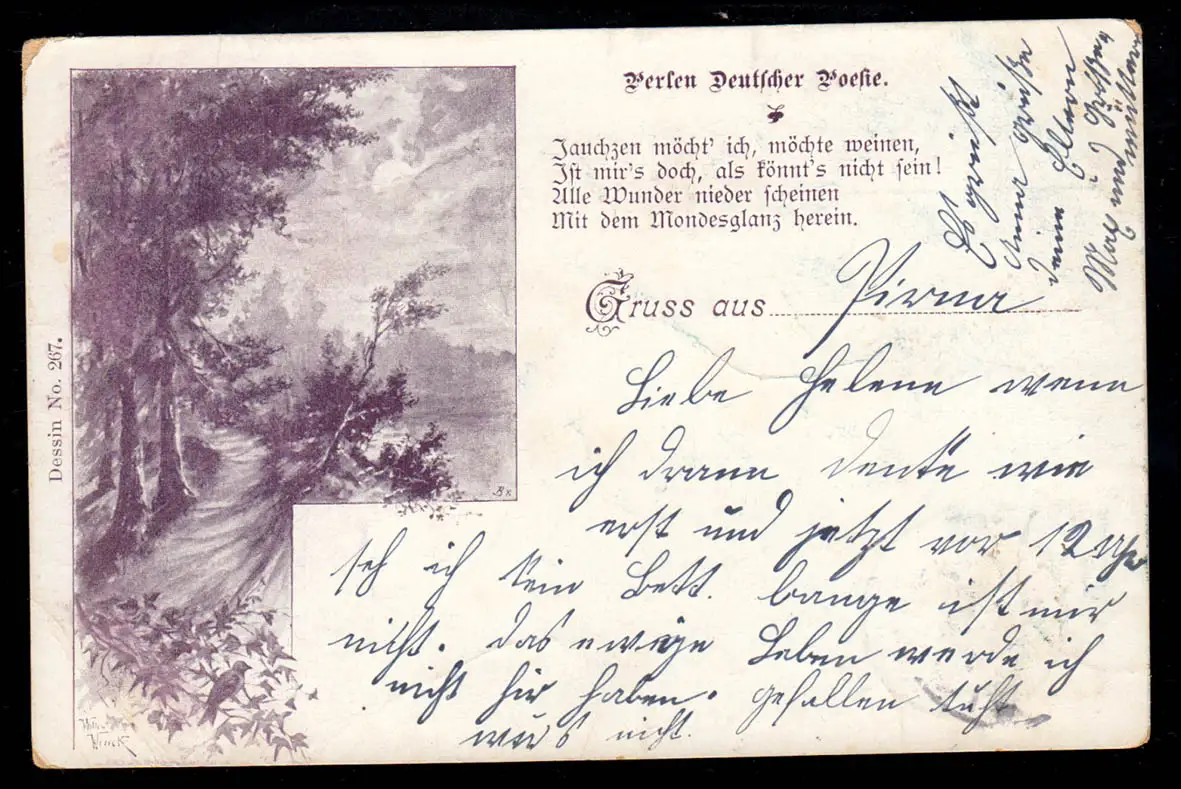 Perlen Deutscher Poesie.
Jauchzen möcht' ich, möchte weinen,
Ist mir's doch, als könnt's nicht sein!
Alle Wunder nieder scheinen
Mit dem Mondesglanz herein.
Gruss aus Pirna
Liebe Helene wenn
ich drann denke wie
erst und jetzt vor 12 Uhr
seh ich kein Bett. bange ist mir
nicht. das ewige Leben werde ich
nicht hir haben. gefallen tuht
mirs nicht.
Anna grüße
deine Eltern
Max und
Dessin No. 267.